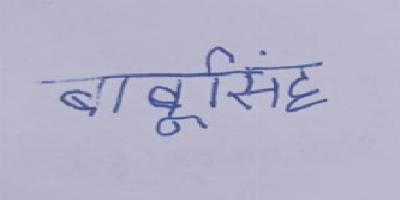 बाबूसिंह